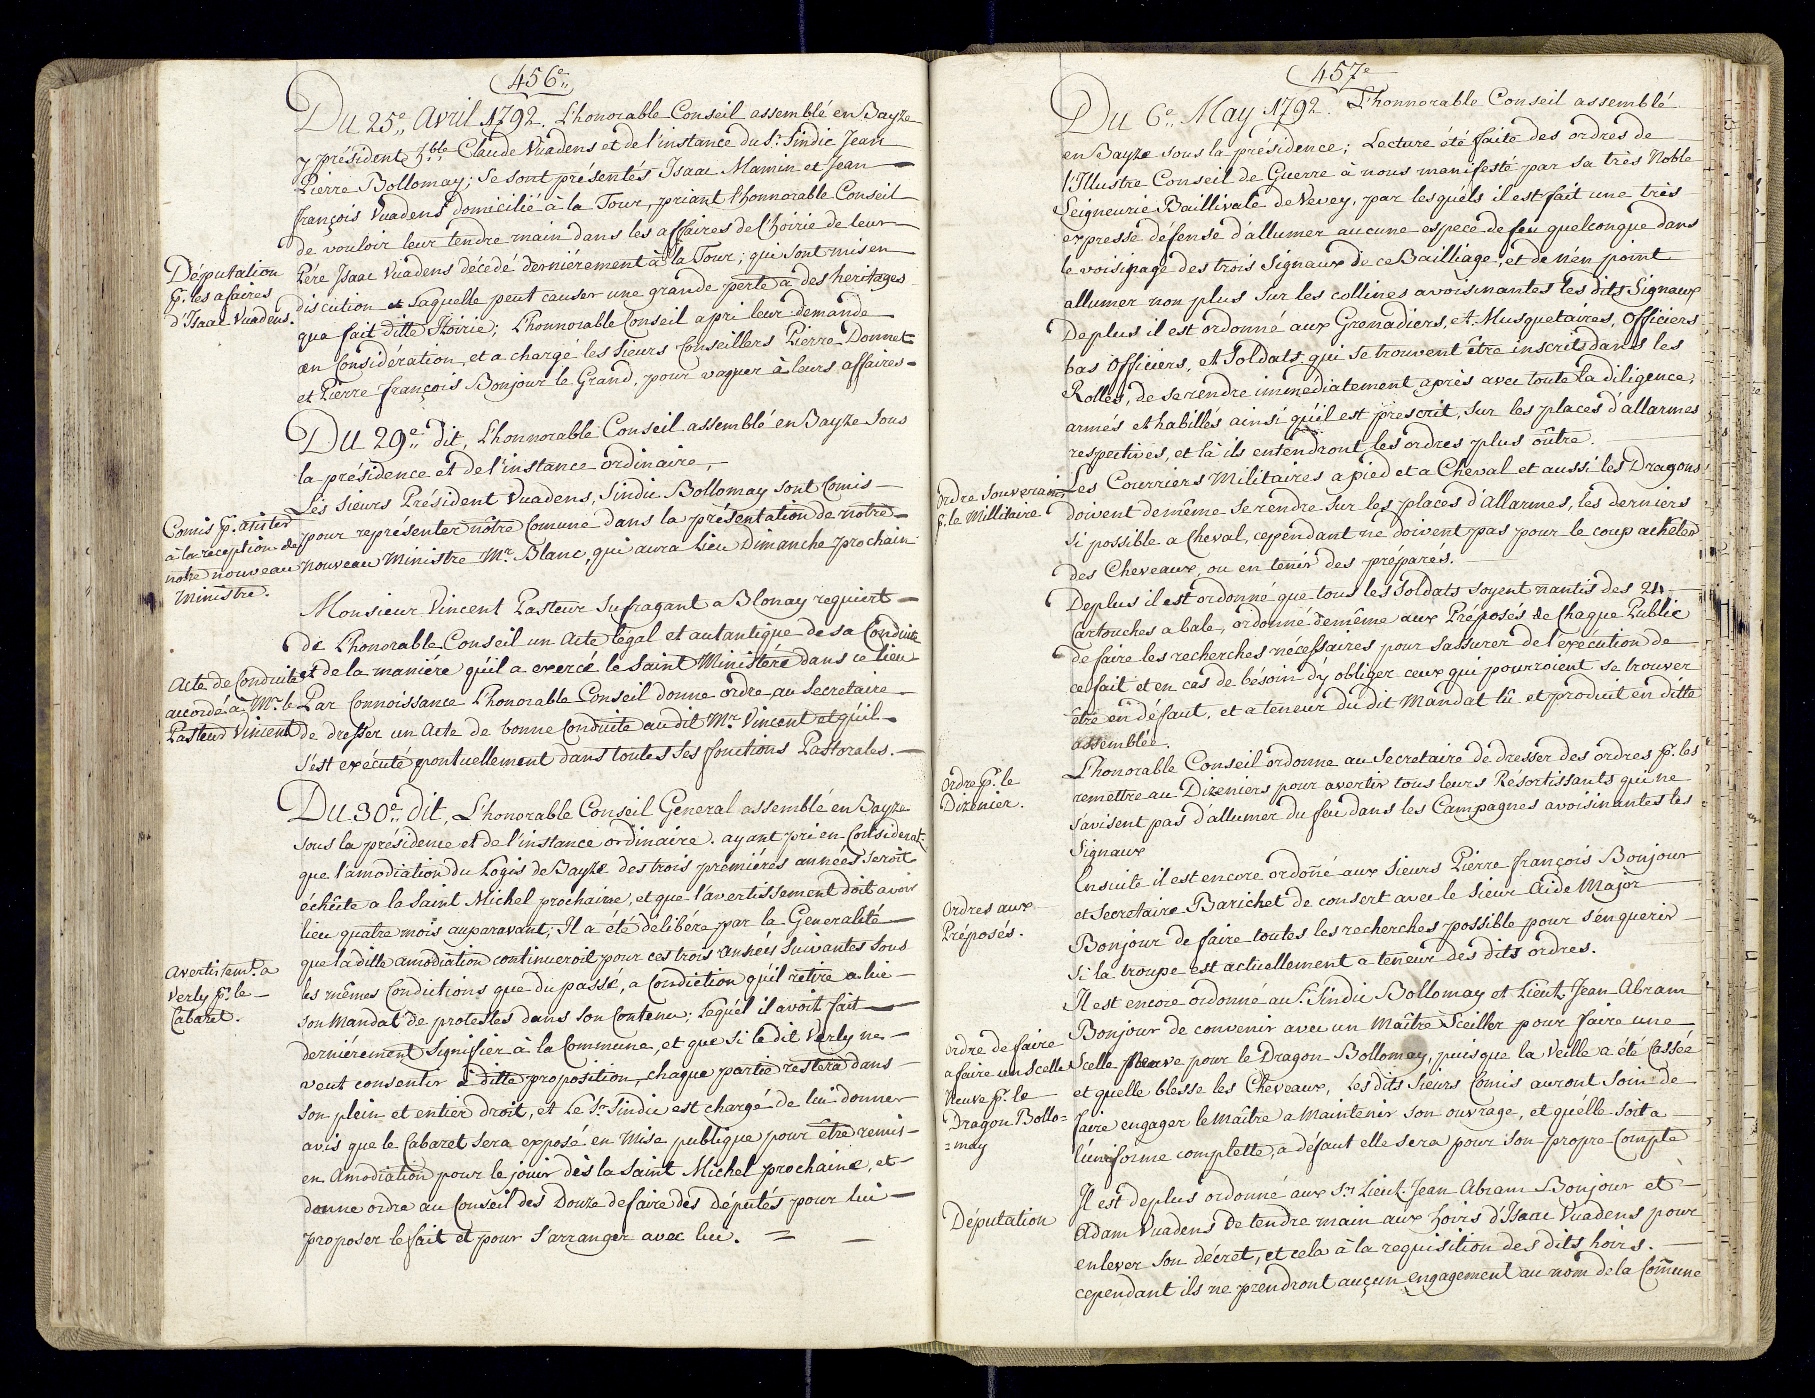 456e
Du 25e Avril 1792. L'honorable Conseil assemblé en Bayze
y président hble Claude Vuadens et de l'instance du Sr. Sindic Jean
Pierre Bollomay; Se sont présentés Isaac Mamin et Jean
françois Vuadens domicilié à la Tour, priant l'honnorable Conseil
de vouloir leur tendre main dans les affaires de l'hoirie de leur
Pére Isaac Vuadens décedé derniérement à la Tour; qui sont mis en
discution et laquelle peut causer une grande perte a des heritages
que fait ditte Hoirie; L'honnorable Conseil a pri leur demande
en Considération, et a chargé les Sieurs Conseillers Pierre Donnet
et Pierre françois Bonjour le Grand, pour vaquer à leurs affaires.
Députation
pr. les afaires
d'Isaac Vuadens.
Du 29e dit, L'honnorable Conseil assemblé en Bayze sous
la présidence et de l'instance ordinaire,
Les Sieurs Président Vuadens, Sindic Bollomay sont Comis
pour représenter nôtre Comune dans la présentation de notre
nouveau Ministre Mr. Blanc, qui aura lieu Dimanche prochain
Comis pr. assister
à la réception de
notre nouveau
Ministre.
Monsieur Vincent Pasteur Sufragant a Blonay requiert
de L'honorable Conseil un Acte légal et autantique de sa Conduite
et de la maniére qu'il a exercé le Saint Ministére dans ce lieu
Par Connoissance L'honorable Conseil donne ordre au Secretaire
de dresser un Acte de bonne Conduite au dit Mr. Vincent et qu'il
s'est exécuté pontuellement dans toutes ses fonctions Pastorales.
Acte de Conduite
accordé à Mr. le
Pasteur Vincent
Du 30e dit, L'honorable Conseil General assemblé en Bayze
sous la présidence et de l'instance ordinaire. ayant pri en Considerat:
que l'amodiation du Logis de Bayze des trois premiéres années seroit
échûte a la Saint Michel prochaine, et que l'avertissement doit avoir
lieu quatre mois auparavant; Il a été délibéré par la Generalité
que la ditte amodiation continueroit pour ces trois années suivantes sous
les mêmes Condictions que du passé, a Condiction qu'il retire a lui
son Mandat de protestes dans son Contenu; lequél il avoit fait
derniérement signifier à la Commune, et que si le dit Verly ne
veut consentir à ditte proposition, chaque partie restera dans
son plein et entier droit, et le Sr. Sindic est chargé de lui donner
avis que le Cabaret sera exposé en Mise publique pour être remis
en Amodiation pour le jouir dès la Saint Michel prochaine, et
donne ordre au Conseil des Douze de faire des députés pour lui
proposer le fait et pour s'arranger avec lui.
Avertissemt. a
Verly pr. le
Cabaret.
457e
Du 6e May 1792. L'honnorable Conseil assemblé
en Bayze sous la présidence; Lecture été faite des ordres de
l'Illustre Conseil de Guerre à nous manifesté par sa très Noble
Seigneurie Baillivale de Vevey, par lesquéls il est fait une très
expresse défense d'allumer aucune espece de feu quelconque dans
le voisinage des trois Signaux de ce Bailliage, et de n'en point
allumer non plus sur les collines avoisinantes les dits Signaux
De plus il est ordonné aux Grenadiers, et Musquetaires, Officiers
bas Officiers, et Soldats qui se trouvent être inscrits dans les
Rolles, de se rendre immédiatement après avec toute la diligence,
armés et habillés ainsi qu'il est prescrit, sur les places d'allarmes
respectives, et là ils entendront les ordres plus oûtre.
Les Courriers Militaires a pied et a Cheval et aussi les Dragons
doivent de même se rendre sur les places d'Allarmes, les derniers
si possible a Cheval, cependant ne doivent pas pour le coup achéter
des Cheveaux, ou en tenir des préparés.
Ordre Souverain
p. le Millitaire
De plus il est ordonné que tous les Soldats soyent nantis des 24
Cartouches a bale, ordonné de même aux Préposés de Chaque Public
de faire les recherches nécessaires pour s'assurer de l'exécution de
ce fait et en cas de bésoin d'y obliger ceux qui pourroient se trouver
être en défaut, et a teneur du dit Mandat lû et produit en ditte
assemblée.
L'honorable Conseil ordonne au Secretaire de dresser des ordres pr. les
remettre au Dizeniers pour avertir tous leurs Résortissants qui ne
s'avisent pas d'allumer du feu dans les Campagnes avoisinantes les
Signaux
Ordre pr. le
Dizenier.
Ensuite il est encore ordoñé aux Sieurs Pierre françois Bonjour
et Secretaire Barichet de consert avec le Sieur Aide Major
Bonjour de faire toutes les recherches possible pour s'enquerir
si la troupe est actuellement a teneur des dits ordres.
Ordres aux
Préposés.
Il est encore ordonné au Sr. Sindic Bollomay et Lieut. Jean Abram
Bonjour de convenir avec un Maître Sceiller pour faire une
Scelle Neuve pour le Dragon Bollomay, puisque la Veille a été Cassée
et quelle blesse les Cheveaux, Les dits Sieurs Comis auront soin de
faire engager le maître a Maintenir son ouvrage, et quélle soit a
l'uniforme complette, a défaut elle sera pour son propre Compte
Ordre de faire
a faire un Scelle
Neuve pr. le
Dragon Bollo=
=may
Il est de plus ordonné aux Srs Lieut. Jean Abram Bonjour et
Adam Vuadens de tendre main aux hoirs d'Isaac Vuadens pour
enlever son décret, et cela à la requisition des dits hoirs.
cependant ils ne prendront auçun engagement au nom de la Comune
Députation